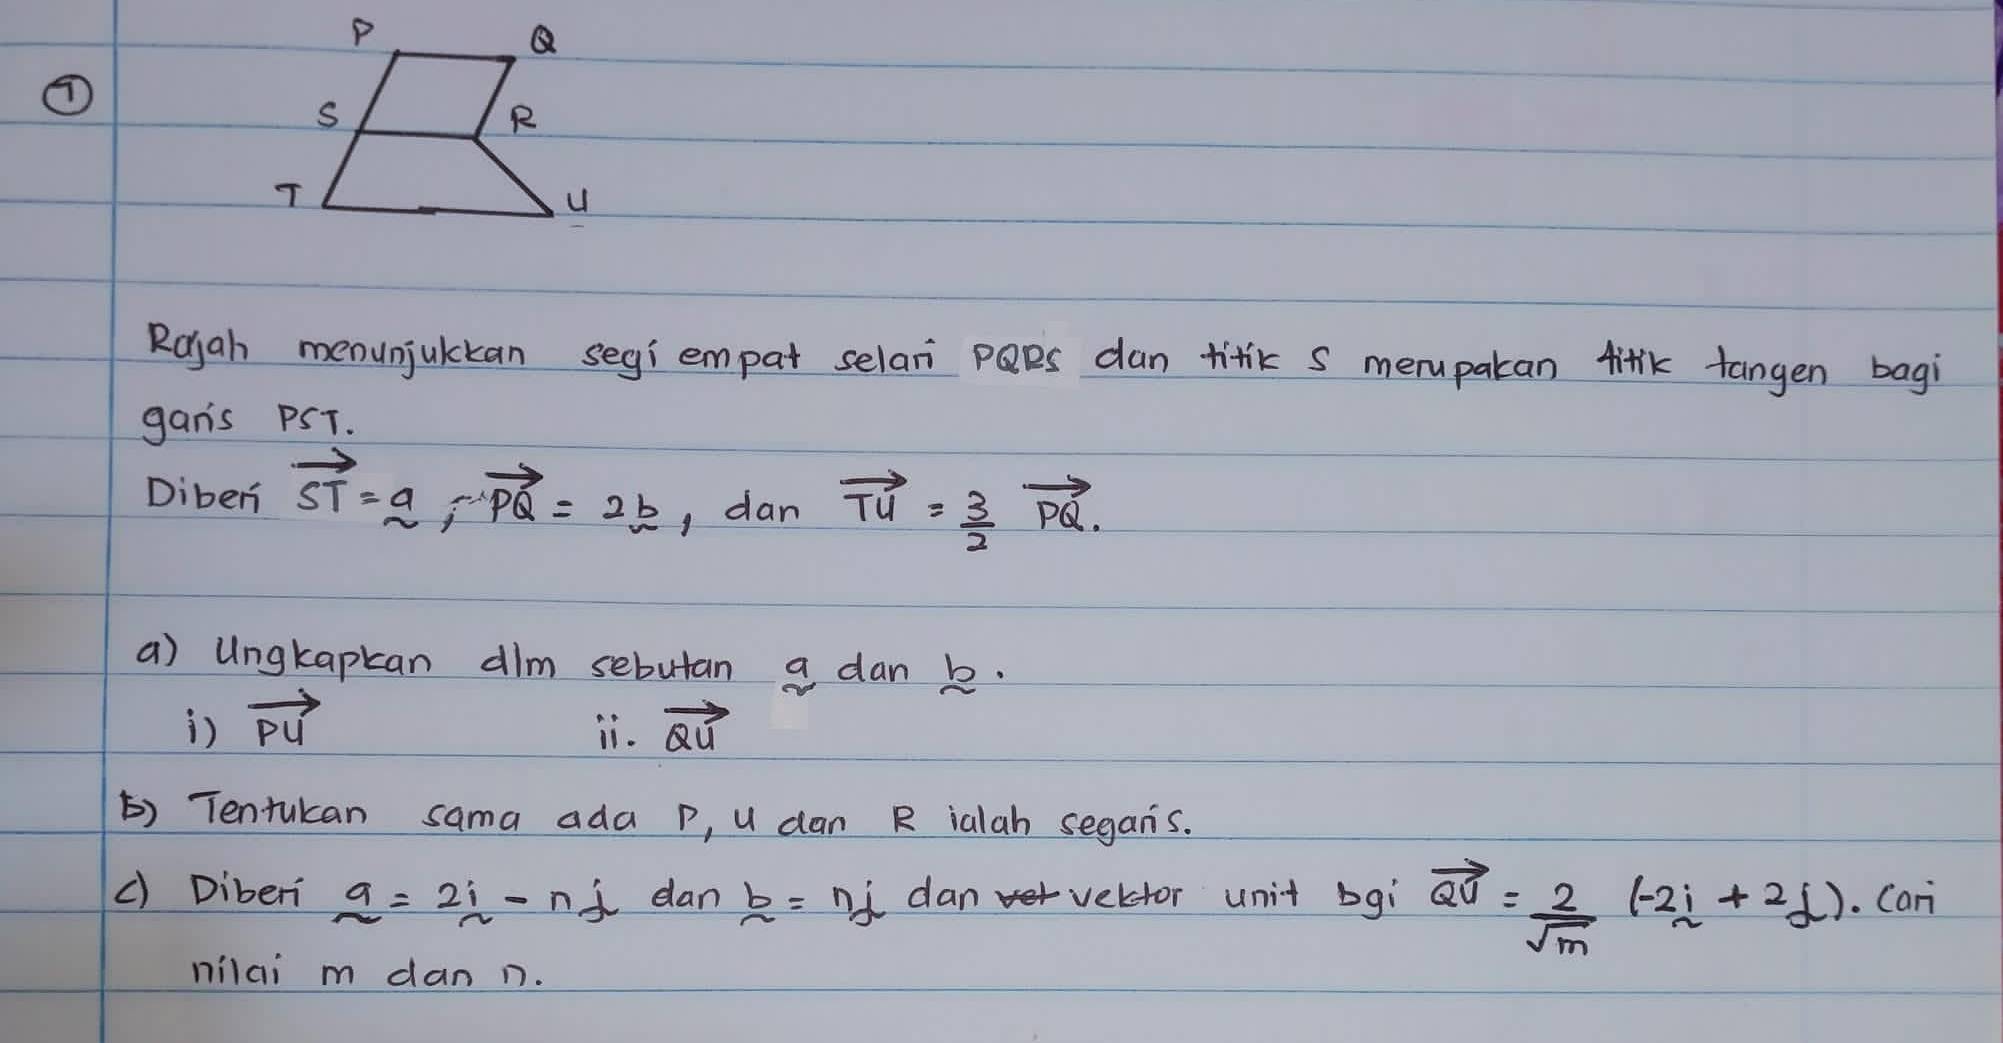 P Q
①
S R
T U
Rajah menunjukkan segi empat selari PQRS dan titik S merupakan titik tangen bagi
garis PST.
Diberi →ST = a̰ , →PQ = 2b̰ , dan →TU = 3/2 →PQ.
a) Ungkapkan dlm sebutan a̰ dan b̰ .
i) →PU ii. →QU
b) Tentukan sama ada P, U dan R ialah segaris.
c) Diberi a̰ = 2ḭ - nj̰ dan b̰ = nj̰ dan vektor unit bgi →QU = 2/√m (-2ḭ + 2j̰). Cari
nilai m dan n.